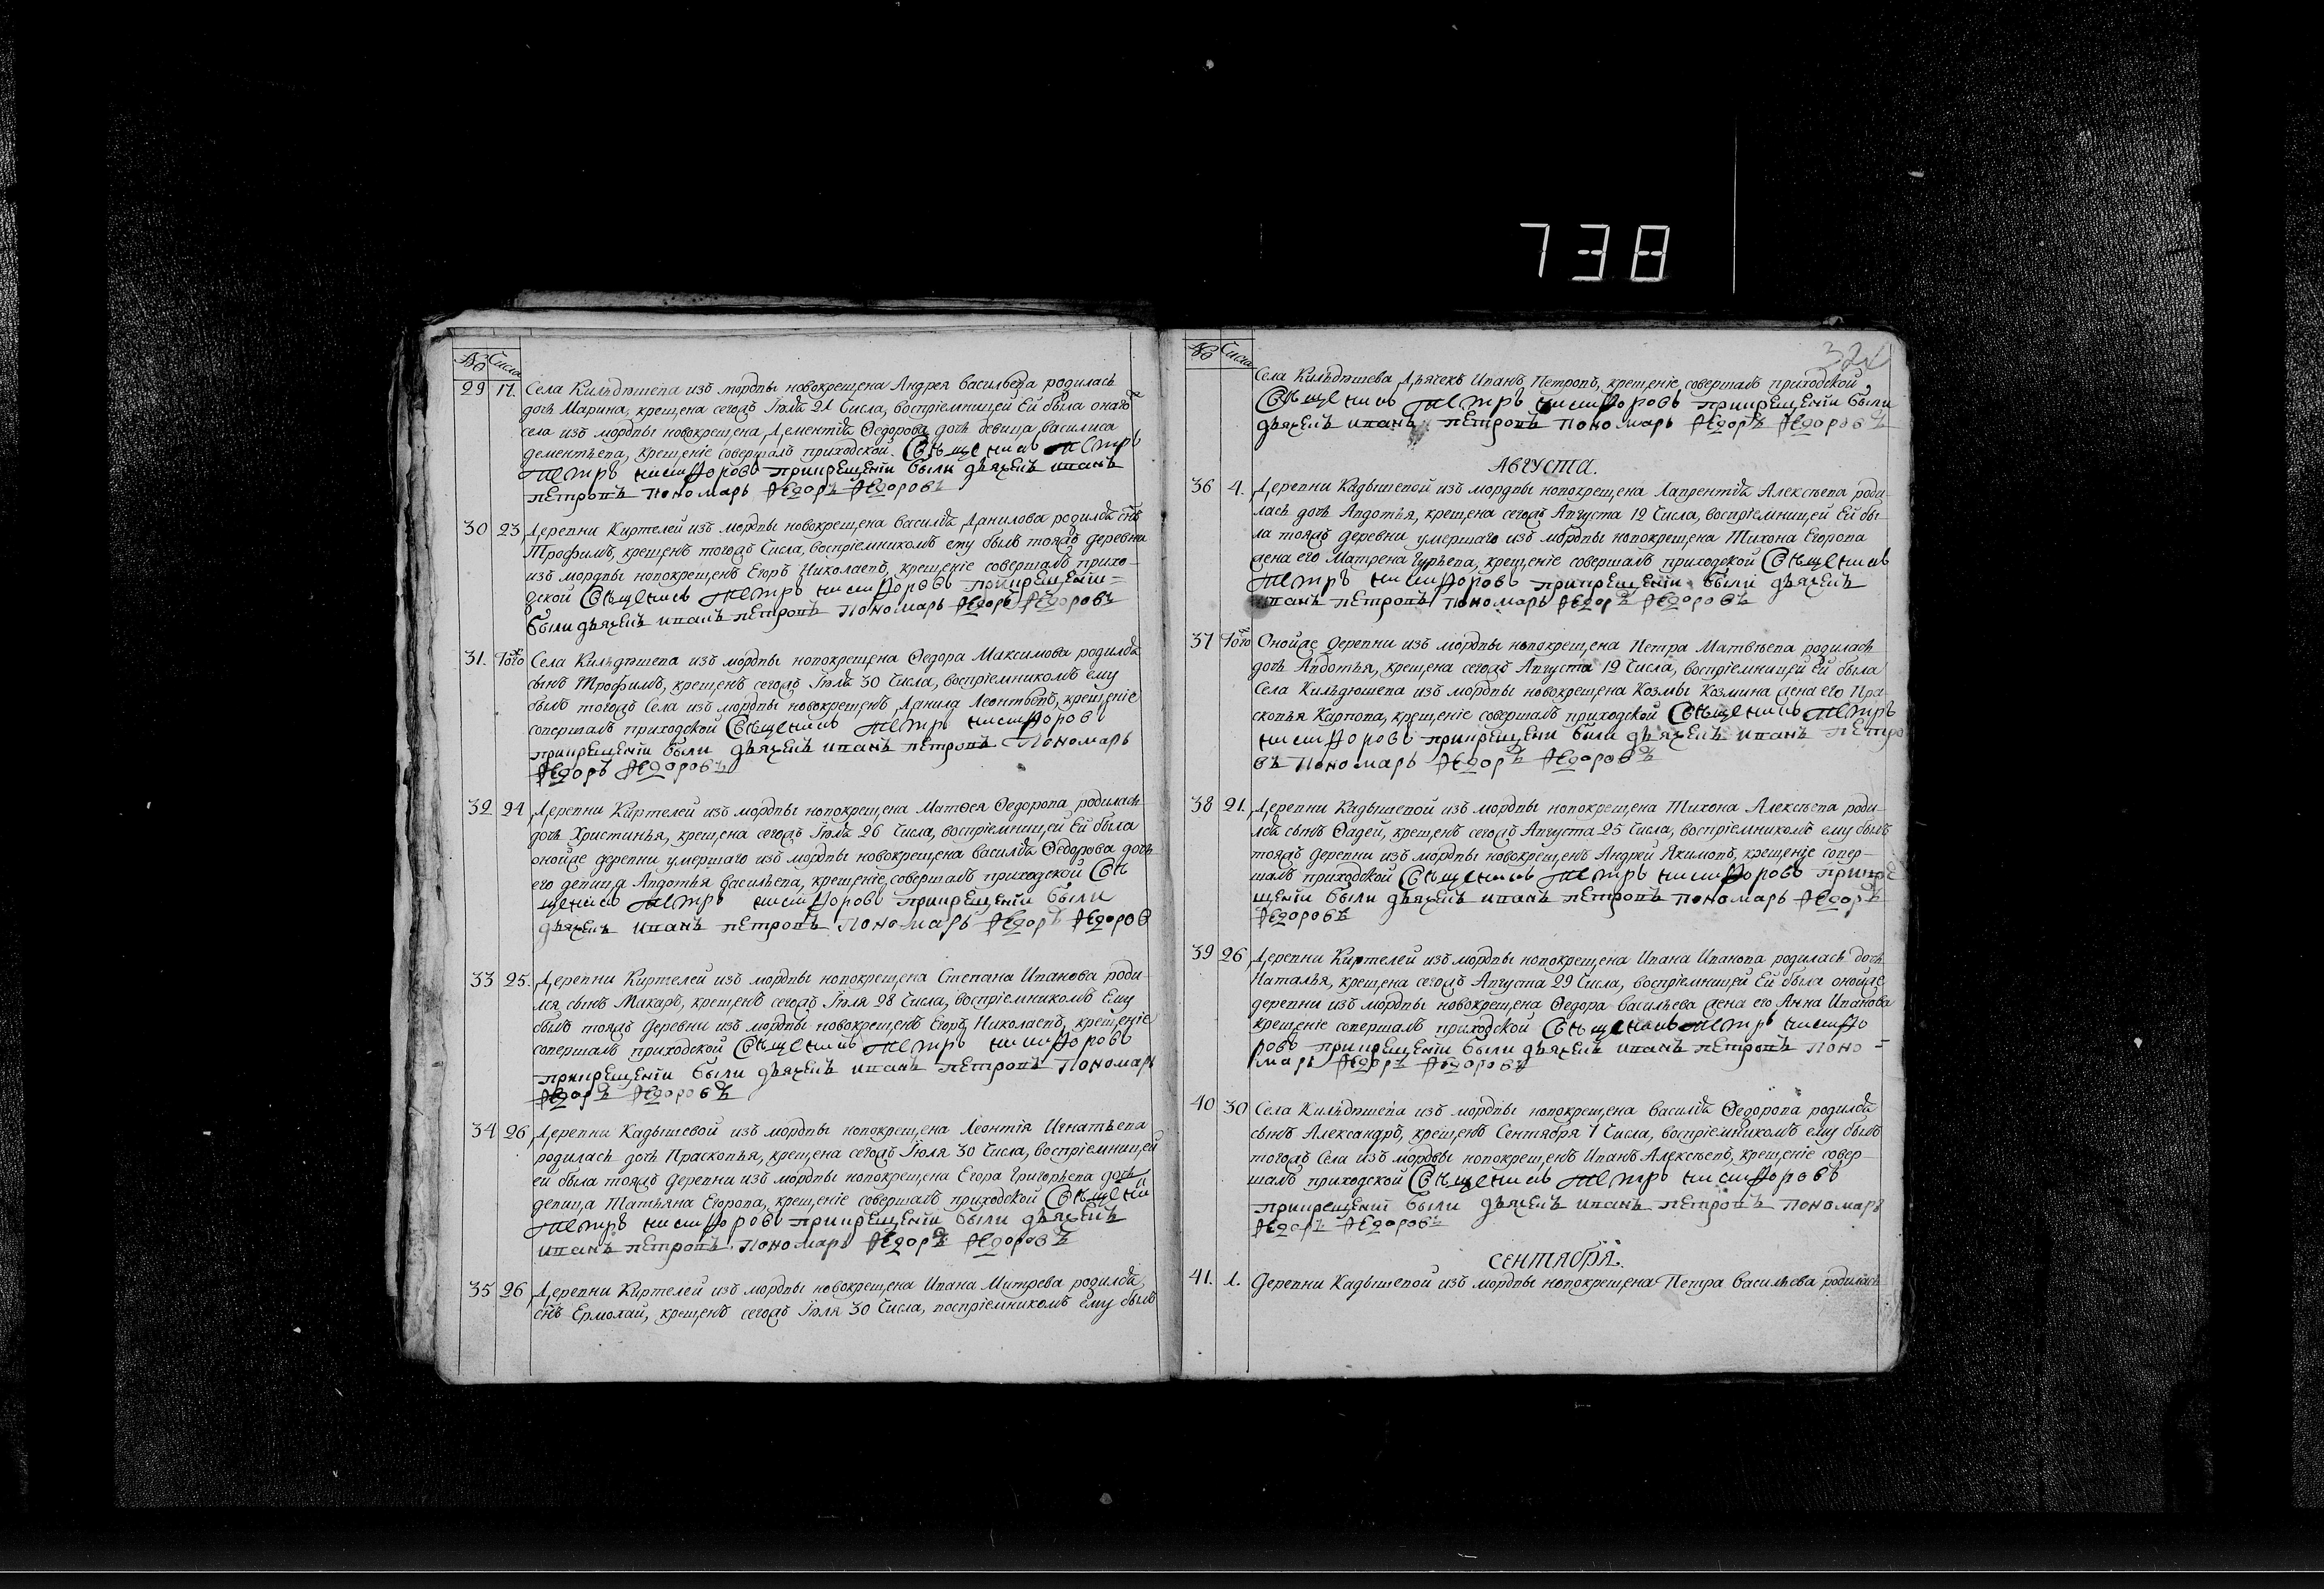 738
324
№ Числа
29 17. Села Кильдюшева изъ мордвы новокрещена Андрея Васильева родилась
дочь Марина, крещена сегожъ Іюля 21 Числа, воспріемницей Ей была онагожъ
села изъ мордвы новокрещена Дементія Ѳедорова дочь девица, василиса
дементьева, крещеніе совершалъ приходской. Священникъ Петръ
Петръ никифоровъ прикрещеніи были дьячекъ иванъ
петровъ пономарь Федоръ Федоровъ
30 23. Деревни Киртелей изъ мордвы новокрещена Василія Данилова родился снъ
Трофимъ, крещенъ тогожъ Числа, воспріемникомъ ему былъ тояжъ деревни
изъ мордвы новокрещенъ Егоръ Николаевъ, крещеніе совершалъ прихо-
дской Священникъ Петръ никифоровъ прикрещеніи=
были дьячекъ иванъ петровъ пономарь Федоръ Федоровъ
31. Тогожъ Села Кильдюшева изъ мордвы новокрещена Ѳедора Максимова родился
сынъ Трофимъ, крещенъ сегожъ Іюля 30 Числа, воспріемникомъ ему
былъ тогожъ Села изъ мордвы новокрещенъ Данила Леонтьевъ, крещеніе
совершалъ приходской Священникъ Петръ никифоровъ
прикрещеніи были дьячекъ иванъ петровъ Пономарь
Федоръ Федоровъ
32 24. Деревни Киртелей изъ мордвы новокрещена Матѳея Ѳедорова родилась
дочь Христинья, крещена сегожъ Іюля 26 Числа, воспріемницей Ей была
онойже деревни умершаго изъ мордвы новокрещена василія Ѳедорова дочь
его девица Авдотья Васильева, крещеніе совершалъ приходской Свя
щенникъ Петръ никифоровъ прикрещеніи были
дьячекъ иванъ петровъ Пономарь Федоръ Федоровъ
33 25. Деревни Киртелей изъ мордвы новокрещена Степана Иванова роди-
лся сынъ Макаръ, крещенъ сегожъ Іюля 28 Числа, воспріемникомъ Ему
былъ тояжъ деревни изъ мордвы новокрещенъ Егоръ Николаевъ, крещеніе
совершалъ приходской Священникъ Петръ никифоровъ
прикрещеніи были дьячекъ иванъ петровъ Пономарь
Федоръ Федоровъ
34 26. Деревни Кадышевой изъ мордвы новокрещена Леонтія Игнатьева
родилась дочь Прасковья, крещена сегожъ Іюля 30 Числа, воспріемницей
ей была тояжъ деревни изъ мордвы новокрещена Егора Григорьева дочь
девица Татьяна Егорова, крещеніе совершалъ приходской Священни
Петръ никифоровъ прикрещеніи были дьячекъ
иванъ петровъ. Пономарь Федоръ Федоровъ
35 26. Деревни Киртелей изъ мордвы новокрещена Ивана Митрева родился,
снъ Ермолай, крещенъ сегожъ Іюля 30 Числа, воспріемникомъ ему былъ
№ Числа
Села Кильдюшева Дьячекъ Иванъ Петровъ, крещеніе совершалъ приходской,
Священникъ Петръ никифоровъ прикрещеніи были
дьячекъ иванъ петровъ Пономарь Федоръ Федоровъ
АВГУСТА.
36 4. Деревни Кадышевой изъ мордвы новокрещена Лаврентія Алексѣева роди-
лась дочь Авдотья, крещена сегожъ Августа 12 Числа, воспріемницей Ей бы-
ла тояжъ деревни умершаго изъ мордвы новокрещена Тихона Егорова
жена его Матрена Гурьева, крещеніе совершалъ приходской Священникъ
Петръ никифоровъ прикрещеніи были дьячекъ
иванъ петровъ пономарь Федоръ Федоровъ
37 Тогожъ Онойже деревни изъ мордвы новокрещена Петра Матвѣева родилась
дочь Авдотья, крещена сегожъ Августа 12 Числа, воспріемницей Ей была
Села Кильдюшева изъ мордвы новокрещена Козмы Козмина жена его Пра-
сковья Карпова, крещеніе совершалъ приходской Священникъ Петръ
никифоровъ прикрещени были дьячекъ иванъ петро
въ Пономарь Федоръ Федоровъ
38 21. Деревни Кадышевой изъ мордвы новокрещена Тихона Алексѣева роди-
лся сынъ Ѳадей, крещенъ сегожъ Августа 25 Числа, воспріемникомъ ему былъ
тояжъ деревни изъ мордвы новокрещенъ Андрей Якимовъ, крещеніе совер-
шалъ приходской Священникъ Петръ никифоровъ прикре
щеніи были дьячекъ иванъ петровъ пономарь Федоръ
Федоровъ
39 26. Деревни Киртелей изъ мордвы новокрещена Ивана Иванова родилась дочь
Наталья, крещена сегожъ Августа 29 Числа, воспріемницей Ей была онойже
деревни изъ мордвы новокрещена Ѳедора Васильева жена его Анна Иванова
крещеніе совершалъ приходской Священникъ Петръ никифо
ровъ прикрещеніи были дьячекъ иванъ петровъ Поно-
марь Федоръ Федоровъ
40 30 Села Кильдюшева изъ мордвы новокрещена Василія Ѳедорова родился
сынъ Александръ, крещенъ Сентября 1 Числа, воспріемникомъ ему былъ
тогожъ Села изъ мордвы новокрещенъ Иванъ Алексѣевъ, крещеніе совер-
шалъ приходской Священникъ Петръ никифоровъ
прикрещеніи были дьячекъ иванъ петровъ Пономарь
Федоръ Федоровъ
СЕНТЯБРЯ.
41. 1. Деревни Кадышевой изъ мордвы новокрещена Петра Васильева родилась